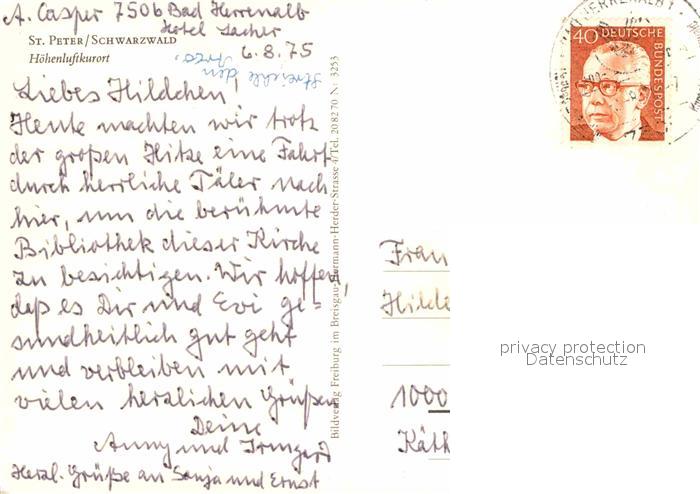 A. Casper 7506 Bad Herrenalb
Hotel Sacher
6.8.75
ST. PETER/SCHWARZWALD
Höhenluftkurort
Liebes Hildchen!
Heute machten wir trotz
der großen Hitze eine Fahrt
durch herrliche Täler nach
hier, um die berühmte
Bibliothek dieser Kirche
zu besichtigen. Wir hoffen,
daß es Dir und Evi ge=
sundheitlich gut geht
und verbleiben mit
vielen herzlichen Grüßen
Deine
Anny und Irmgard
Herzl. Grüße an Sonja und Ernst
Bildverlag Freiburg im Breisgau Hermann-Herder-Strasse 4/Tel. 208270 Nr. 3253
40 DEUTSCHE
BUNDESPOST
Frau
Hilde
1000
Käth
privacy protection
Datenschutz